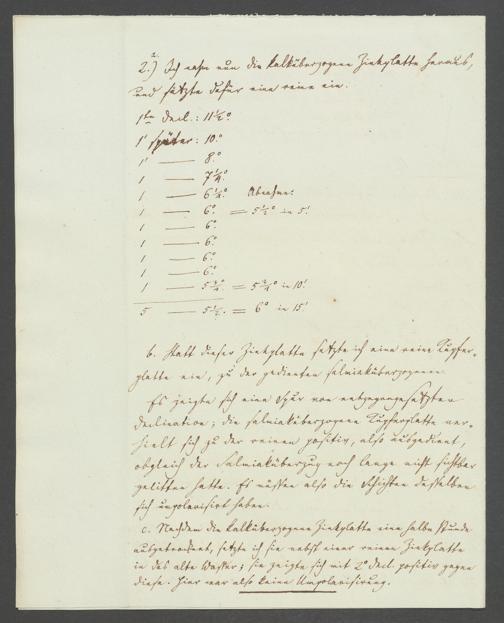 a.
2.) Ich nahm nun die kalküberzogene Zinkplatte heraus,
und setzte dafür eine reine ein.
1te Decl.: 11½°
1' später: 10°
1' — 8°
1 — 7¼°
1 — 6½° Abnahme:
1 — 6° = 5½° in 5'
1 — 6°
1 — 6°
1 — 6°
1 — 6°
1 — 5¾° = 5¾° in 10'
5 — 5½° = 6° in 15'
b. Statt dieser Zinkplatte setzte ich eine reine Kupfer-
platte ein, zu der gedienten salmiaküberzogenen.
Es zeigte sich eine Spur von entgegengesetzter
Declination; die salmiaküberzogene Kupferplatte ver-
hielt sich zu der reinen positiv, also ausgedient,
obgleich der Salmiaküberzug noch lange nicht sichtbar
gelitten hatte. Es mussten also die Schichten desselben
sich umpolarisirt haben.
c. Nachdem die kalküberzogene Zinkplatte eine halbe Stunde
ausgetrocknet, setzte ich sie nebst einer reinen Zinkplatte
in das alte Wasser; sie zeigte sich mit 2° Decl. positiv gegen
diese. Hier war also keine Umpolarisirung.